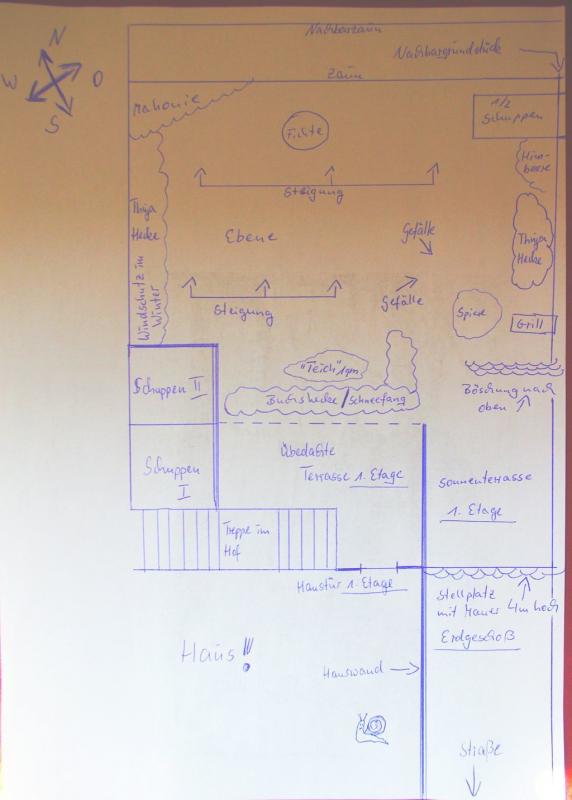 Nachbarzaun
N
Nachbargrundstück
W
O
Zaun
S
Mahonie
1/2
Schuppen
Fichte
Him-
beere
Steigung
Thuja
Hecke
Ebene
Gefälle
Thuja
Hecke
Windschutz im
Winter
Gefälle
Steigung
Grill
"Teich" 1qm
Schuppen II
Buchshecke / Schneefang
Böschung nach
oben
Übedachte
Terrasse 1. Etage
Schuppen
I
Sonnenterrasse
1. Etage
Treppe im
Hof
Haustür 1. Etage
Stellplatz
mit Mauer 4m hoch
Erdgeschoß
Haus!!!
Hauswand
Straße